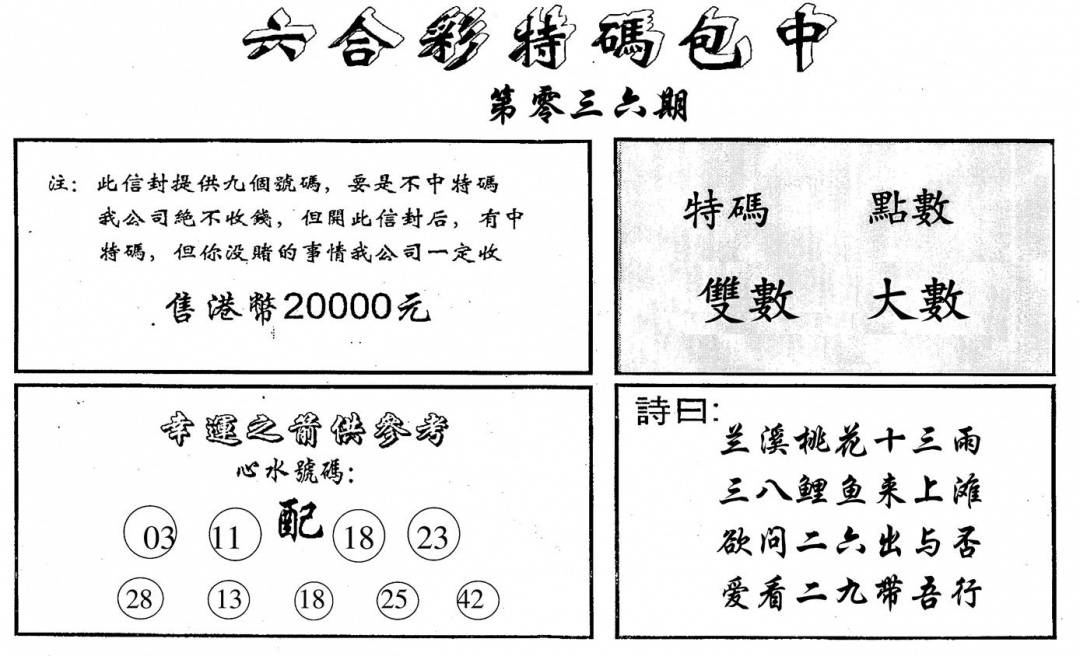 六合彩特碼包中
第零三六期
注：此信封提供九個號碼，要是不中特碼
我公司絶不收錢，但開此信封后，有中
特碼，但你没賭的事情我公司一定收
售港幣20000元
特碼 點數
雙數 大數
幸運之箭供參考
心水號碼：
03 11 配 18 23
28 13 18 25 42
詩曰：
兰溪桃花十三雨
三八鲤鱼来上滩
欲问二六出与否
爱看二九带吾行